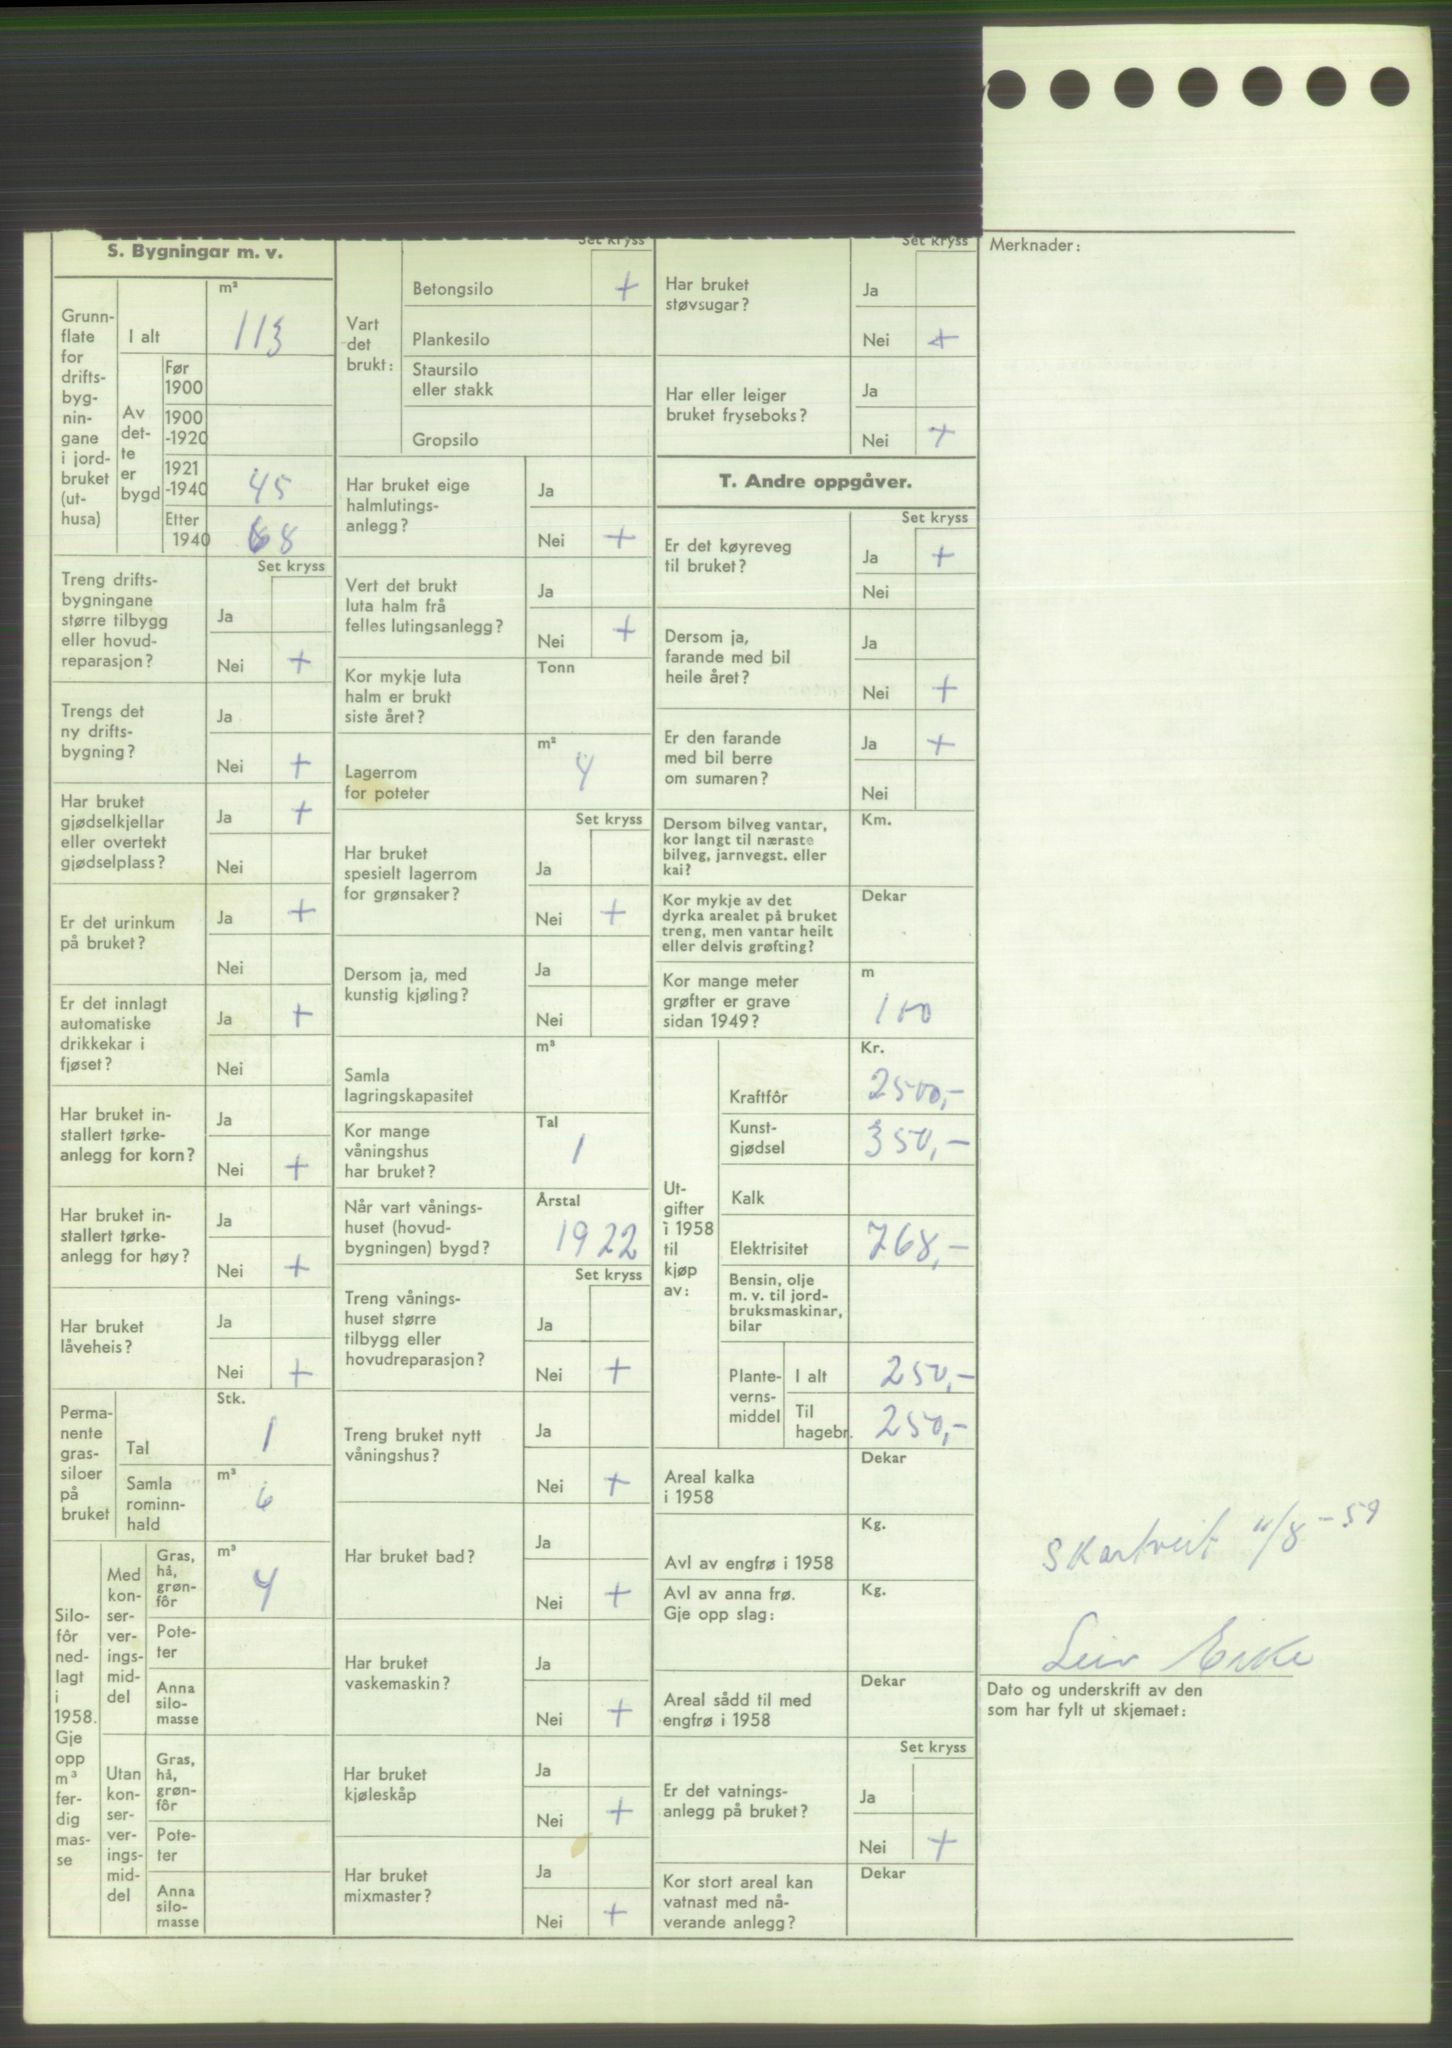 S. Bygningar m. v.
Grunn-
flate
for
drifts-
byg-
nin-
gane
i jord-
bruket
(ut-
husa)
m²
I alt 113
Av
det-
te
er
bygd
Før
1900
1900
-1920
1921
-1940 45
Etter
1940 68
Set kryss
Treng drifts-
bygningane
større tilbygg
eller hovud-
reparasjon?
Ja
Nei +
Trengs det
ny drifts-
bygning?
Ja
Nei +
Har bruket
gjødselkjellar
eller overtekt
gjødselplass?
Ja +
Nei
Er det urinkum
på bruket?
Ja +
Nei
Er det innlagt
automatiske
drikkekar i
fjøset?
Ja +
Nei
Har bruket in-
stallert tørke-
anlegg for korn?
Ja
Nei +
Har bruket in-
stallert tørke-
anlegg for høy?
Ja
Nei +
Har bruket
låveheis?
Ja
Nei +
Perma-
nente
gras-
siloer
på
bruket
Stk.
Tal 1
m³
Samla
rominn-
hald 6
Silo-
fôr
ned-
lagt
i
1958.
Gje
opp
m³
fer-
dig
mas-
se
Med
kon-
ser-
ver-
ings-
mid-
del
Gras,
hå,
grøn-
fôr
m³
4
Pote-
ter
Anna
silo-
masse
Utan
kon-
ser-
ver-
ings-
mid-
del
Gras,
hå,
grøn-
fôr
Pote-
ter
Anna
silo-
masse
Set kryss
Vart
det
brukt:
Betongsilo +
Plankesilo
Staursilo
eller stakk
Gropsilo
Har bruket eige
halmlutings-
anlegg?
Ja
Nei +
Vert det brukt
luta halm frå
felles lutingsanlegg?
Ja
Nei +
Kor mykje luta
halm er brukt
siste året?
Tonn
Lagerrom
for poteter
m²
4
Set kryss
Har bruket
spesielt lagerrom
for grønsaker?
Ja
Nei +
Dersom ja, med
kunstig kjøling?
Ja
Nei
Samla
lagringskapasitet
m³
Kor mange
våningshus
har bruket?
Tal
1
Når vart vånings-
huset (hovud-
bygningen) bygd?
Årstal
1922
Set kryss
Treng vånings-
huset større
tilbygg eller
hovudreparasjon?
Ja
Nei +
Treng bruket nytt
våningshus?
Ja
Nei +
Har bruket bad?
Ja
Nei +
Har bruket
vaskemaskin?
Ja
Nei +
Har bruket
kjøleskåp
Ja
Nei +
Har bruket
mixmaster?
Ja
Nei +
Set kryss
Har bruket
støvsugar?
Ja
Nei +
Har eller leiger
bruket fryseboks?
Ja
Nei +
T. Andre oppgåver.
Set kryss
Er det køyreveg
til bruket?
Ja +
Nei
Dersom ja,
farande med bil
heile året?
Ja
Nei +
Er den farande
med bil berre
om sumaren?
Ja +
Nei
Dersom bilveg vantar,
kor langt til næraste
bilveg, jarnvegst. eller
kai?
Km.
Kor mykje av det
dyrka arealet på bruket
treng, men vantar heilt
eller delvis grøfting?
Dekar
Kor mange meter
grøfter er grave
sidan 1949?
m
100
Ut-
gifter
i 1958
til
kjøp
av:
Kr.
Kraftfôr 2500,-
Kunst-
gjødsel 350,-
Kalk
Elektrisitet 768,-
Bensin, olje
m. v. til jord-
bruksmaskinar,
bilar
Plante-
verns-
middel
I alt 250,-
Til
hagebr. 250,-
Areal kalka
i 1958
Dekar
Avl av engfrø i 1958
Kg.
Avl av anna frø.
Gje opp slag:
Kg.
Areal sådd til med
engfrø i 1958
Dekar
Set kryss
Er det vatnings-
anlegg på bruket?
Ja
Nei +
Kor stort areal kan
vatnast med nå-
verande anlegg?
Dekar
Merknader:
Skartveit 11/8-59
Leiv Eike
Dato og underskrift av den
som har fylt ut skjemaet: